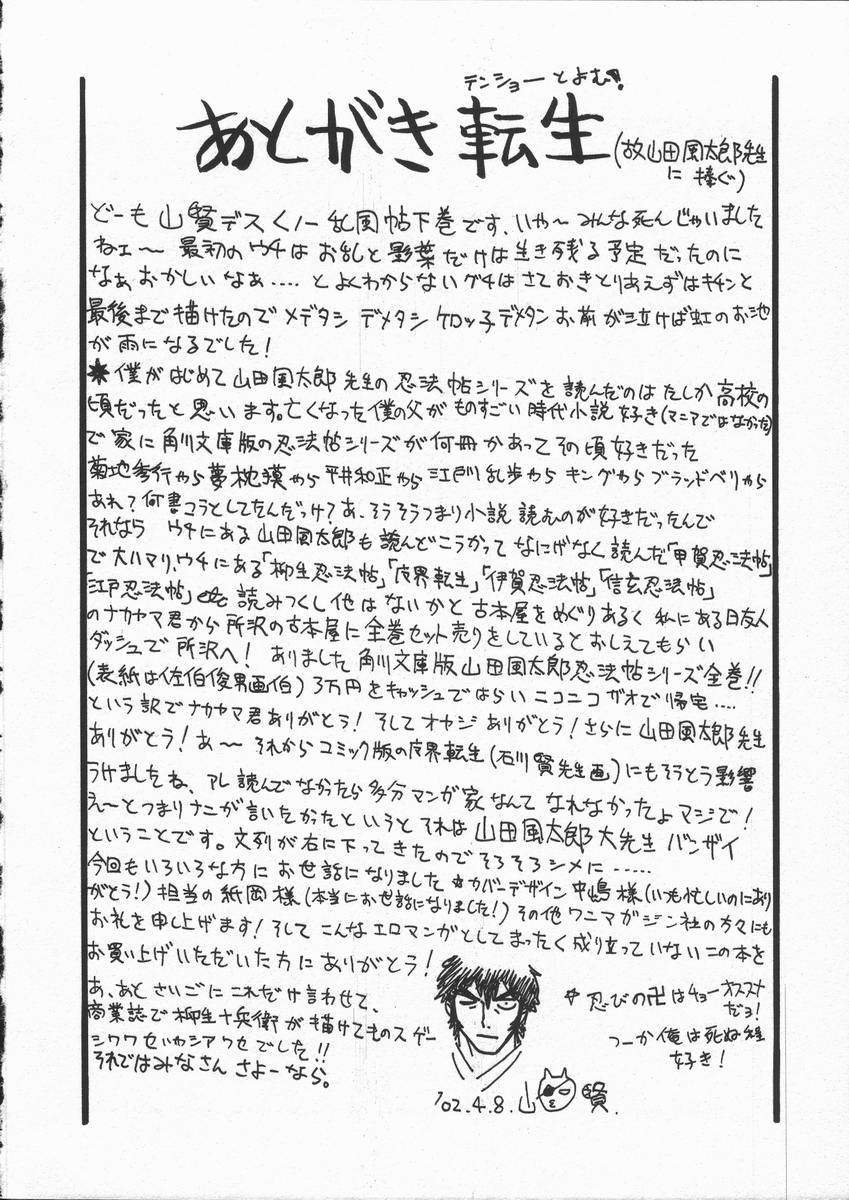 テンショーとよむ!
あとがき転生
(故山田風太郎先生
に捧ぐ)
どーも山賢デスくノ一乱風帖下巻です、いや〜みんな死んじゃいました
ねェ〜 最初のウチはお乱と影葉だけは生き残る予定だったのに
なぁおかしいなぁ.... とよくわからないグチはさておきとりあえずはキチンと
最後まで描けたのでメデタシ デメタシ ケロッ子デメタンお前が泣けば虹のお池
が雨になるでした!
★僕がはじめて山田風太郎先生の忍法帖シリーズを読んだのはたしか高校の
頃だったと思います。亡くなった僕の父がものすごい時代小説好き(マニアではなかった)
で家に角川文庫版の忍法帖シリーズが何冊かあってその頃好きだった
菊地秀行やら夢枕獏やら平井和正やら江戸川乱歩やらキングやらブランドベリやら
あれ?何書コラとしてたんだっけ?あ、そうそうつまり小説読むのが好きだったんで
それなら ウチにある山田風太郎も読んどこうかってなにげなく読んだ「甲賀忍法帖」
で大ハマリ、ウチにある「柳生忍法帖」「魔界転生」「伊賀忍法帖」「信玄忍法帖」
「江戸忍法帖」etc読みつくし他はないかと古本屋をめぐりあるく私にある日友人
のナカヤマ君から所沢の古本屋に全巻セット売りをしているとおしえてもらい
ダッシュで所沢へ! ありました角川文庫版山田風太郎忍法帖シリーズ全巻!!
(表紙は佐伯俊男画伯)3万円をキャッシュではらいニコニコガオで帰宅....
という訳でナカヤマ君ありがとう! そしてオヤジありがとう!さらに山田風太郎先生
ありがとう!あ〜 それからコミック版の魔界転生(石川賢先生画)にもそうとう影響
うけましたね、アレ読んでなかったら多分マンガ家なんてなれなかったよマジで!
え〜とつまりナニが言いたかったというとそれは山田風太郎大先生バンザイ
ということです。文列が右に下ってきたのでそろそろシメに......
今回もいろいろな方にお世話になりました カバーデザイン中嶋様(いつも忙しいのにあり
がとう!)担当の紙岡様(本当にお世話になりました!)その他ワニマガジン社の方々にも
お礼を申し上げます!そしてこんなエロマンガとしてまったく成り立っていないこの本を
お買い上げいただいた方にありがとう!
あ、あとさいごにこれだけ言わせて、
商業誌で柳生十兵衛が描けてものスゲー
シワワセいやシアワセでした!!
それではみなさんさよーなら。
忍びの卍はチョーオススメ
だョ!
つーか俺は死ぬ程
好き!
'02.4.8.山賢.